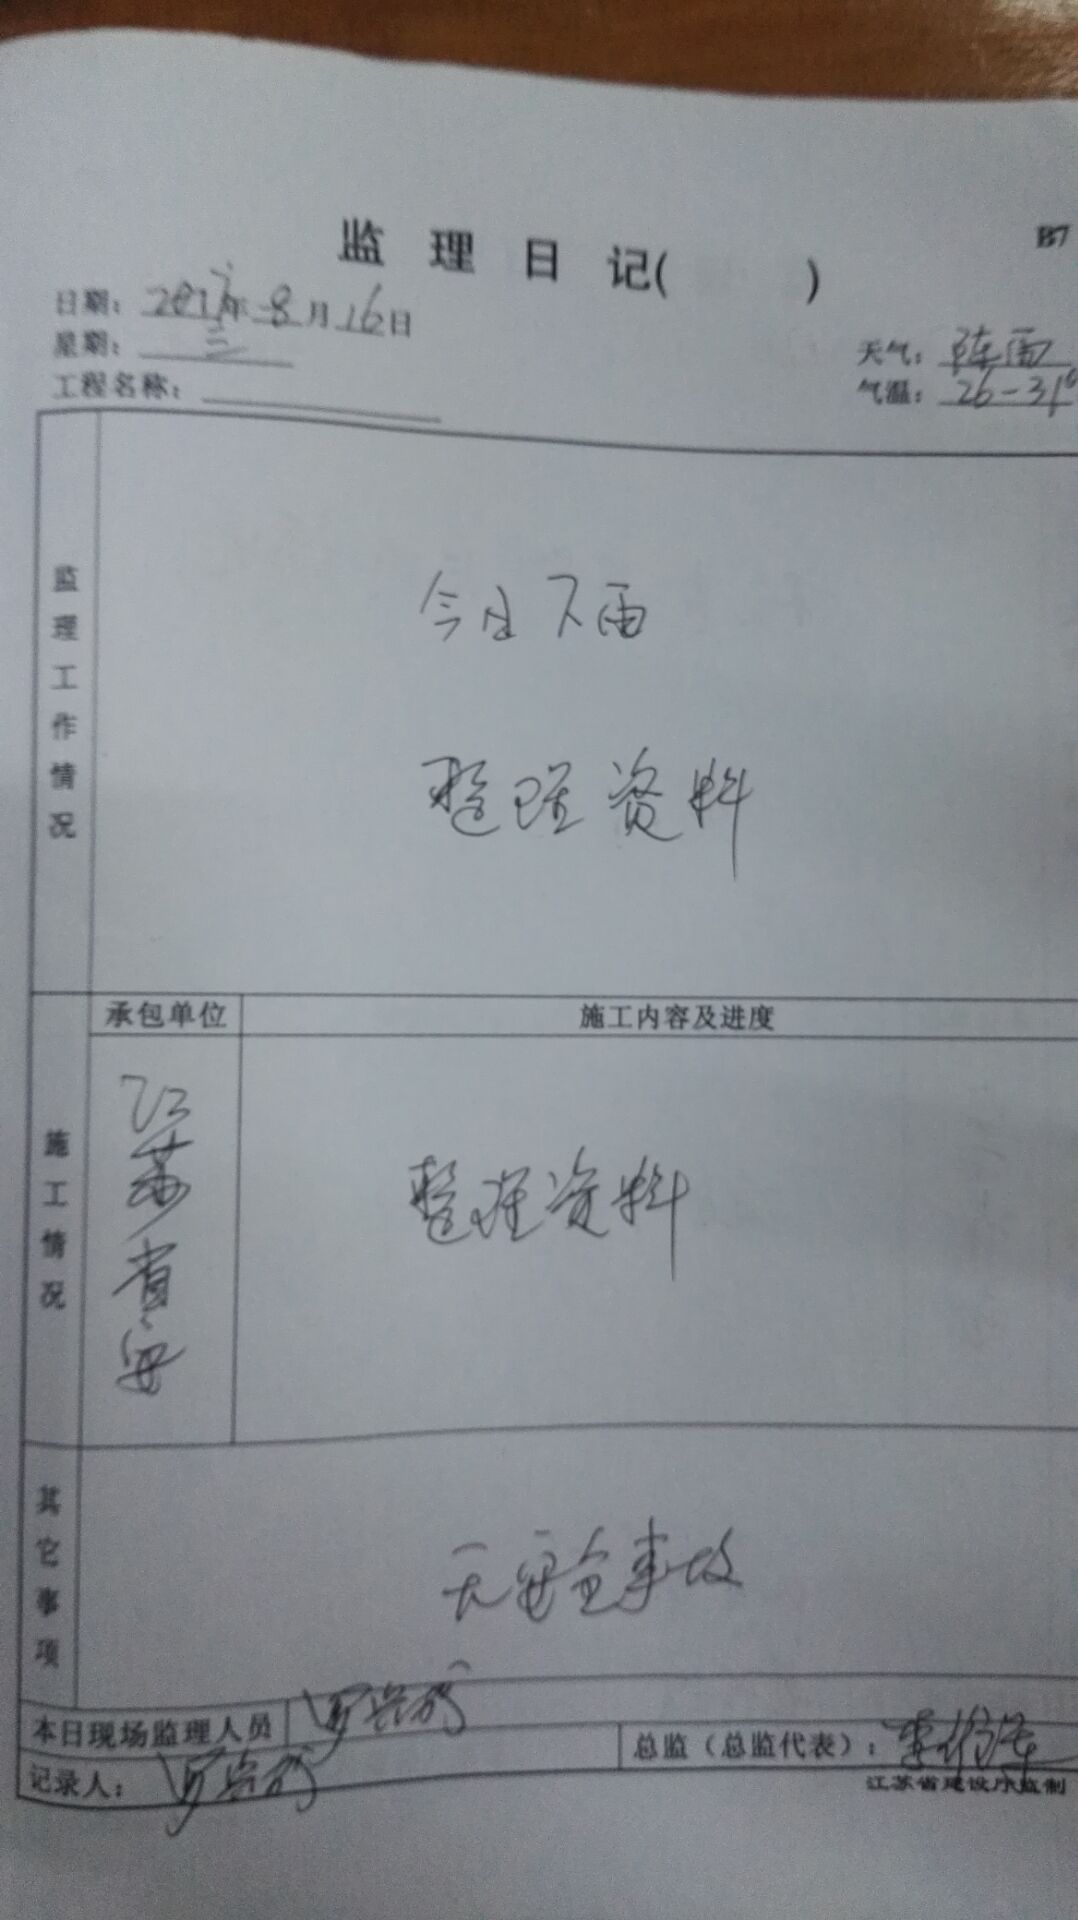 B7
监 理 日 记( )
日期：2017年8月16日
星期：三
天气：阵雨
工程名称：
气温：26-31°
监理工作情况
今日下雨
整理资料
承包单位
施工内容及进度
施工情况
江苏省安
整理资料
其它事项
无安全事故
本日现场监理人员
总监（总监代表）：
记录人：
江苏省建设厅监制